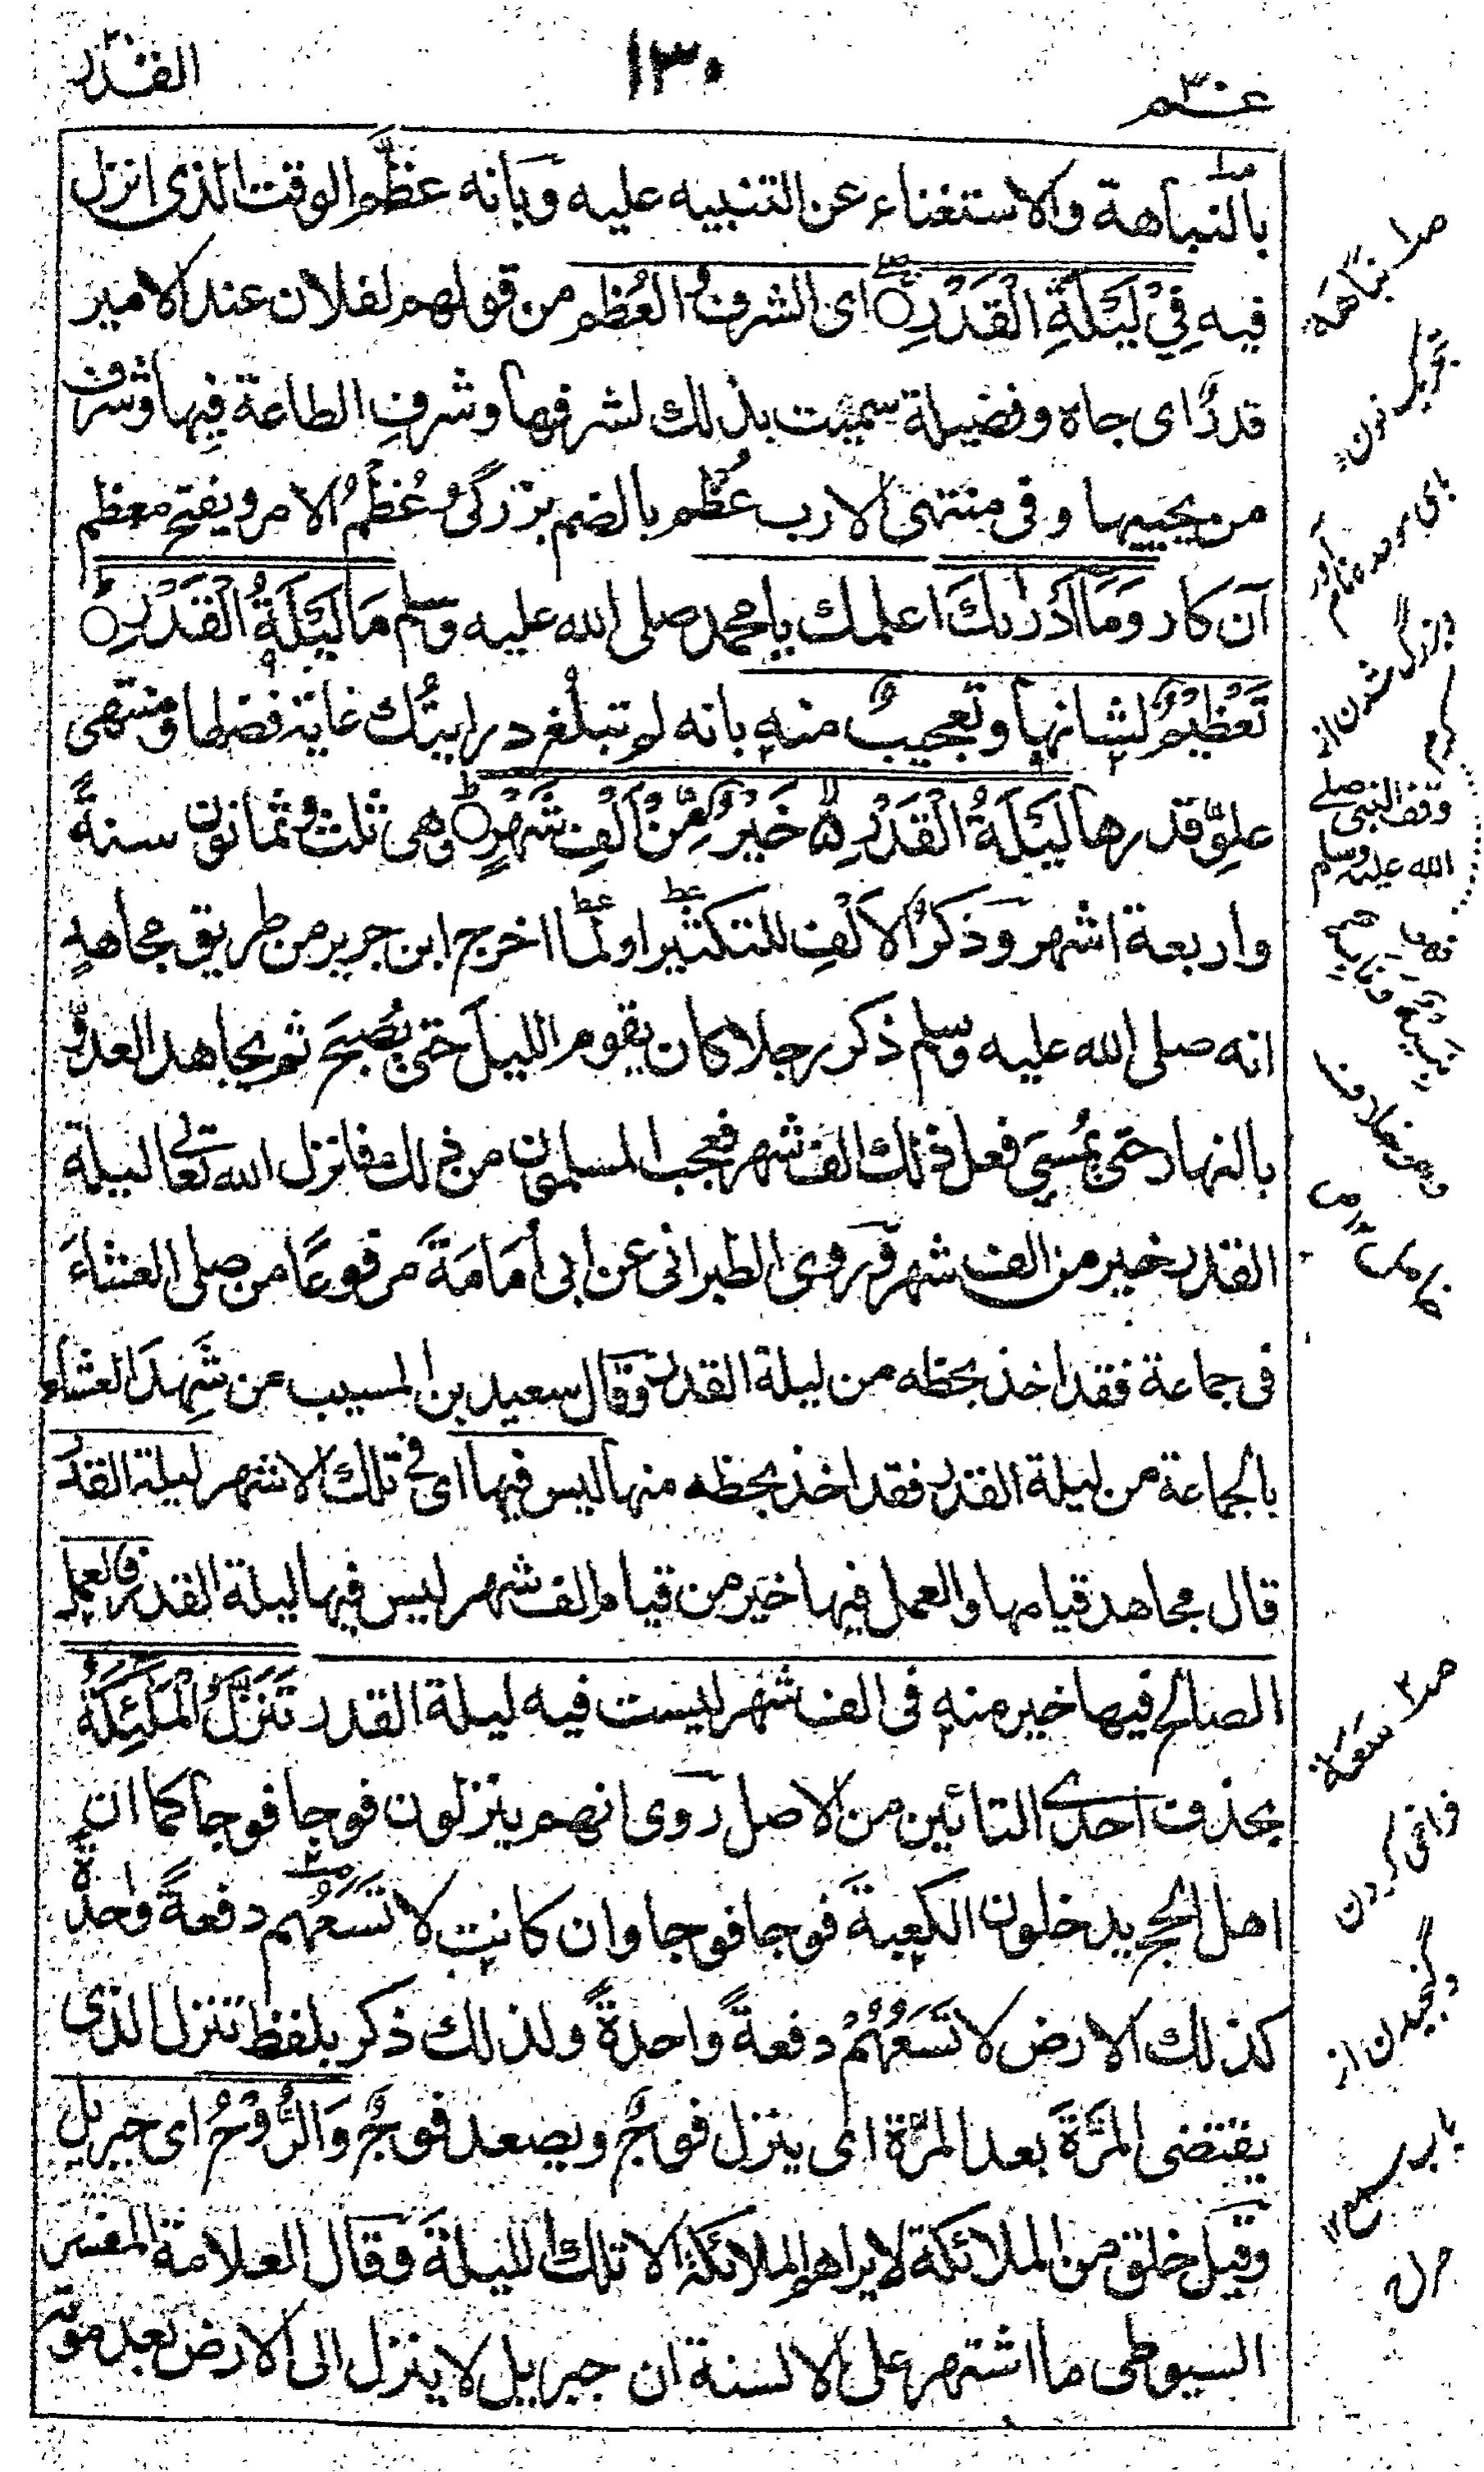 عم ٣٠
١٣٠
القدر
بالنباهة والاستغناء عن التنبيه عليه وبانه عظّم الوقت الذى انزل
فيه فِيْ لَيْلَةِ الْقَدْرِ اى الشرف والعُظم من قولهم لفلان عند الامير
قدرٌ اى جاه وفضيلة سميت بذلك لشرفها وشرفِ الطاعة فيها وشرف
من يحييها وفى منتهى الارب عُظم بالضم بزرگى وعُظْمُ الامر ويفتح معظم
آن كار وَمَا أَدْرٰىكَ اعلمك يا محمد صلى الله عليه وسلم مَا لَيْلَةُ الْقَدْرِ
تَعْظِيْمٌ لشانها وتعجيبٌ منه بانه لم تبلغ درايتُك غاية فضلها ومنتهى
علوِّ قدرها لَيْلَةُ الْقَدْرِ خَيْرٌ مِّنْ اَلْفِ شَهْرٍ وهى ثلث وثمانون سنةً
واربعة اشهر وذكرُ الاَلْفِ للتكثير او لما اخرج ابن جرير من طريق مجاهدٍ
انه صلى الله عليه وسلم ذكر رجلا كان يقوم الليلَ حتى يُصبحَ ثم يجاهد العدوَّ
بالنهار حتى يُمْسِيَ فعل ذلك الف شهر فعجب المسلمون من ذلك فانزل الله تعالى ليلة
القدر خير من الف شهر وروى الطبرانى عن ابى أُمَامَةَ مرفوعًا من صلى العشاءَ
فى جماعة فقد اخذ بحظه من ليلة القدر وقال سعيد بن المسيب من شَهِدَ العشاء
بالجماعة من ليلة القدر فقد اخذ بحظه منها ليس فيها اى فى تلك الاشهر ليلة القدر
قال مجاهد قيامها والعمل فيها خير من قيام الف شهر ليس فيها ليلة القدر فالعمل
الصالح فيها خير منه فى الف شهر ليست فيه ليلة القدر تَنَزَّلُ الْمَلٰئِكَةُ
بحذف احدى التائين من الاصل روى انهم ينزلون فوجا فوجا كما ان
اهل الحج يدخلون الكعبةَ فوجا فوجا وان كانت لا تَسَعُهُم دفعةً واحدةً
كذلك الارض لا تَسَعُهُمْ دفعةً واحدةً ولذلك ذكر بلفظ تنزل الذى
يقتضى المَرَّةَ بعد المرَّة اى ينزل فوجٌ ويصعد فوجٌ وَالرُّوْحُ اى جبريل
وقيل خلق من الملائكة لا يراهم الملائكة الا تلك الليلةَ وقال العلامة المفسر
السيوطى ما اشتهر على الالسنة ان جبريل لا ينزل الى الارض بعد موت
صـ١ نباهة
بزرگ شدن از
كرم
وقف النبى صلى
الله عليه وسلم
صـ٣ سَعَة
فراخى كردن
وگنجيدن از
باب سمع ١٢